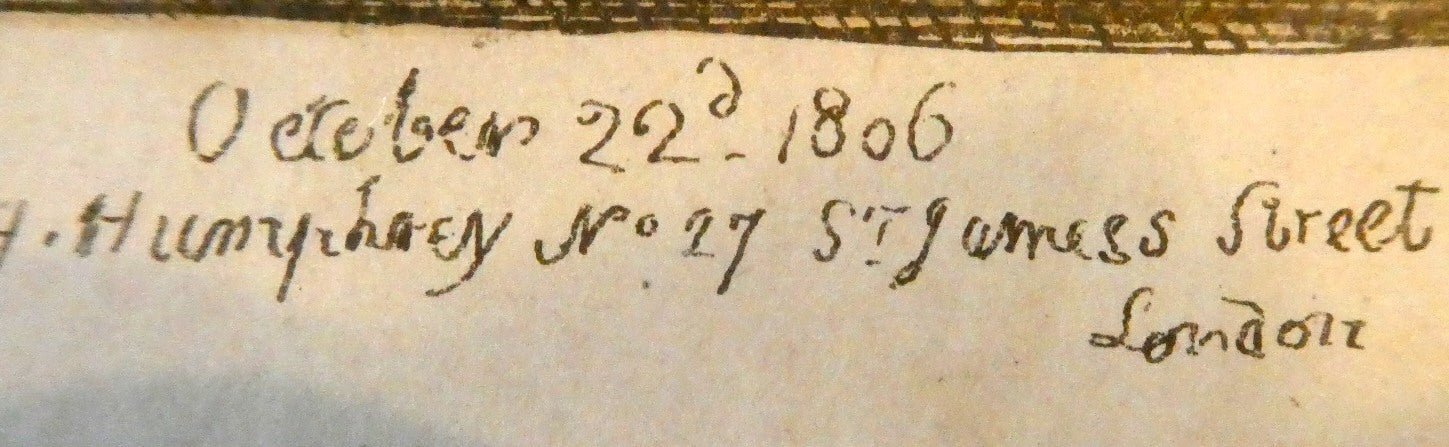 October 22d. 1806
H. Humphrey No 27 St. James's Street
London